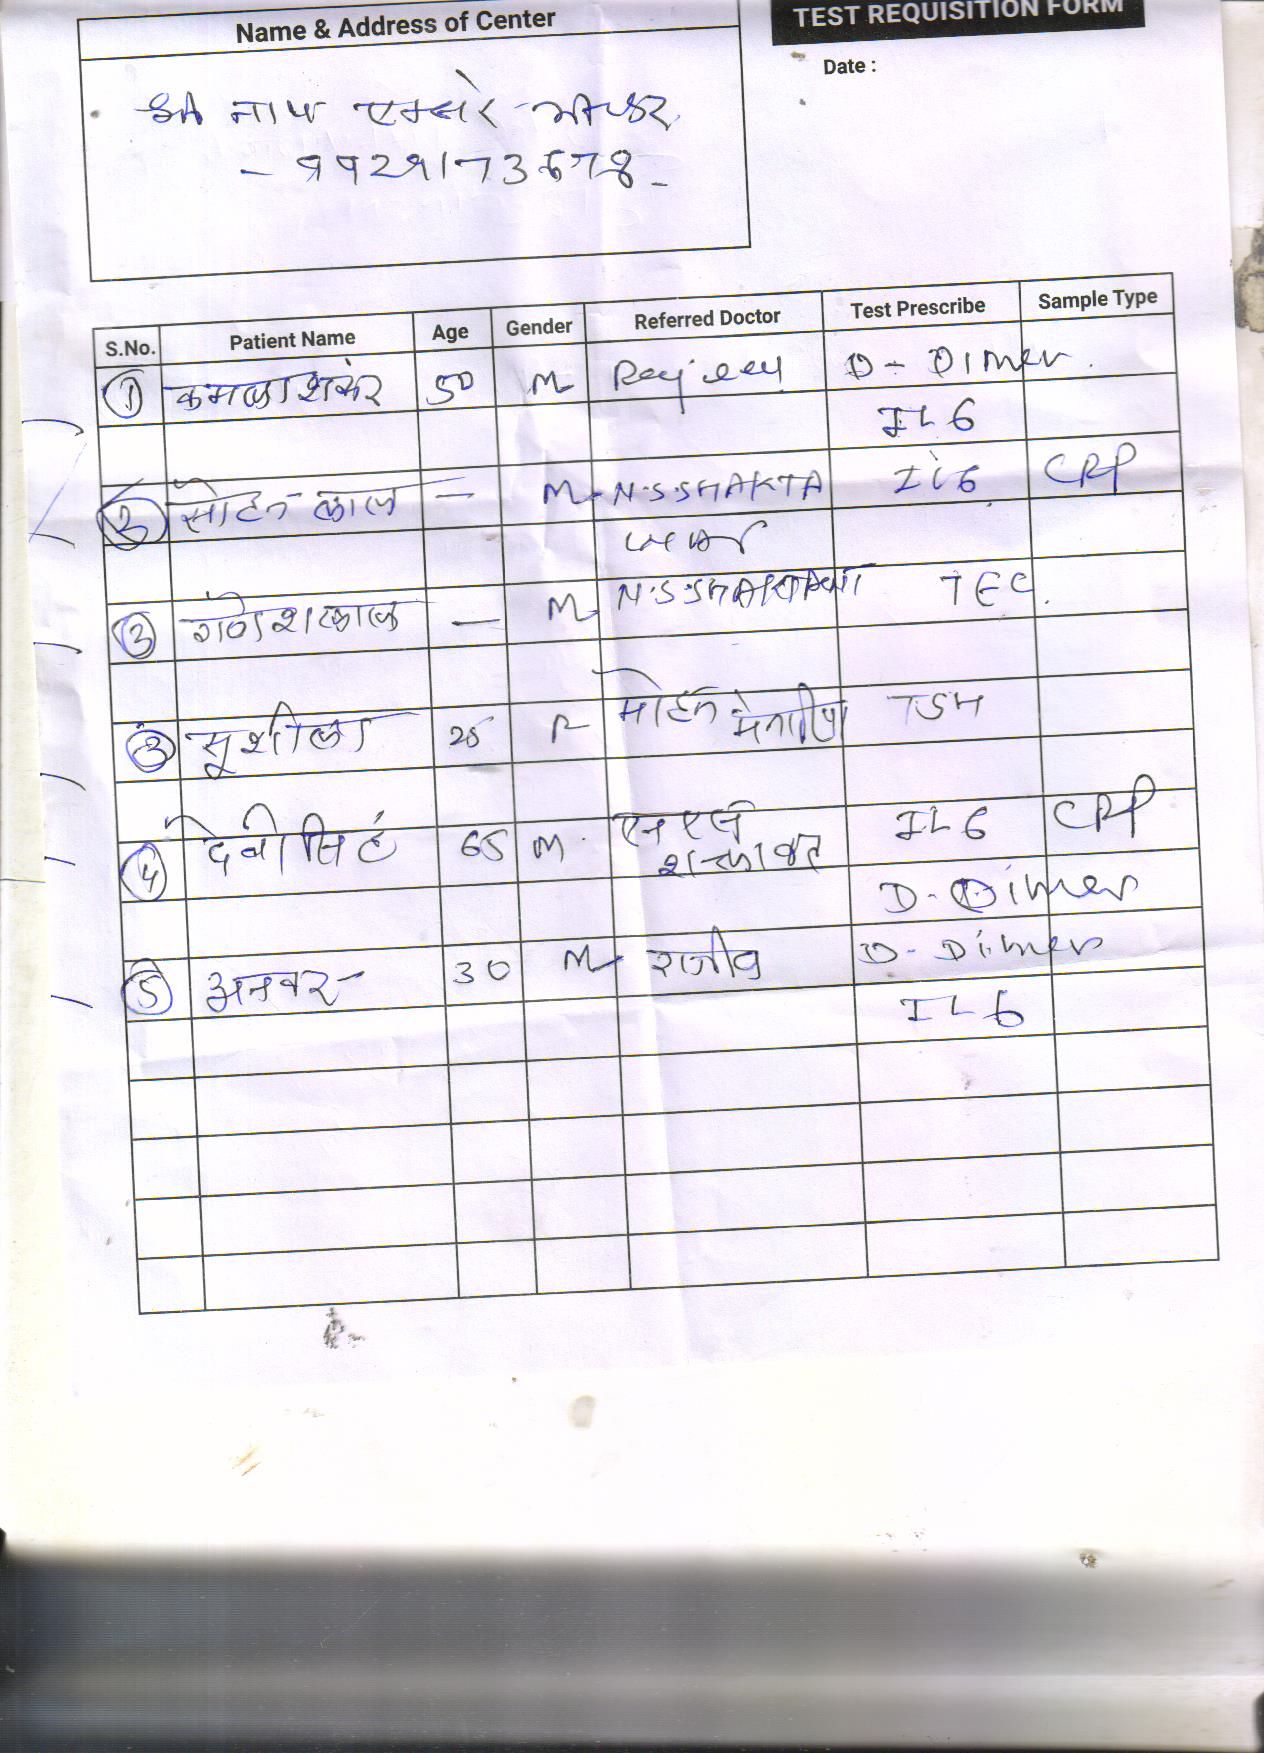 Name & Address of Center
TEST REQUISITION FORM
Date :
श्री नाथ एक्सरे
- ९९२९१७३६७8 -
S.No. Patient Name Age Gender Referred Doctor Test Prescribe Sample Type
① कमलाशंकर 50 M Rajeev D - Dimer .
IL6
② सोहन लाल — M N.S.SHAKTA IL6 CRP
WAR
③ गणेशलाल — M TEC.
③ सुशीला 25 F मोहन मेनारिया TSH
④ देवीसिंह 65 M एन एस IL6 CRP
शक्तावत D- Dimer
⑤ अनवर 30 M राजीव D- Dimer
IL6